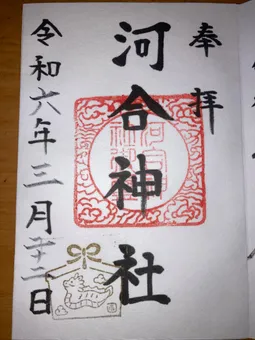 奉拝
河合神社
令和六年三月二十二日